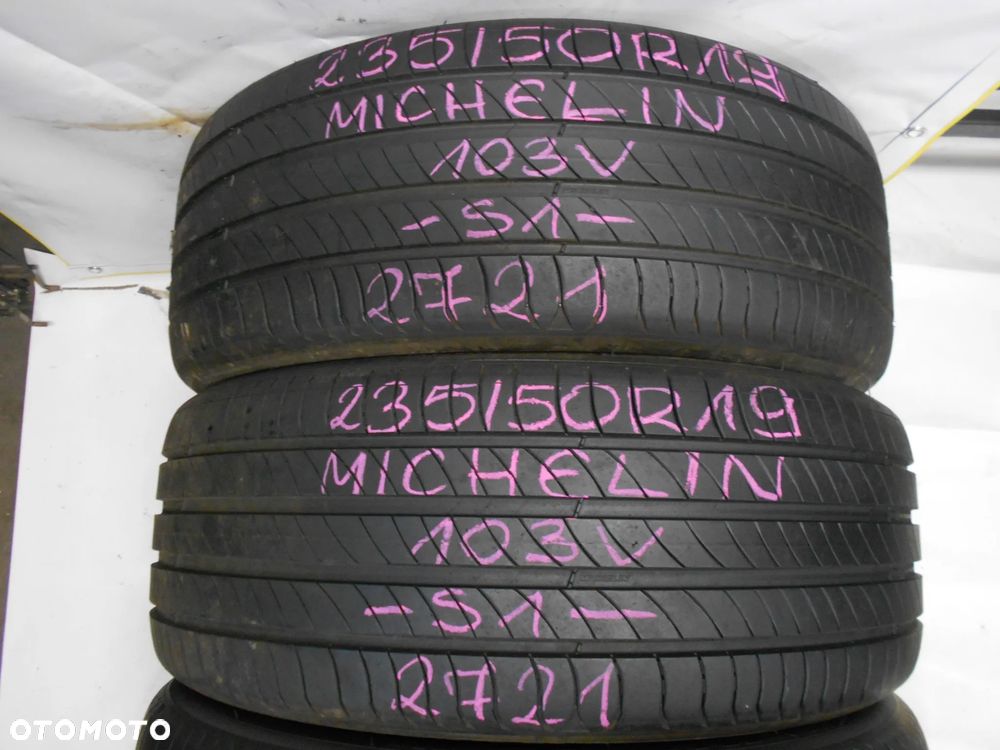 235/50R19
MICHELIN
103V
-S1-
2721
235/50R19
MICHELIN
103V
-S1-
2721
OTOMOTO